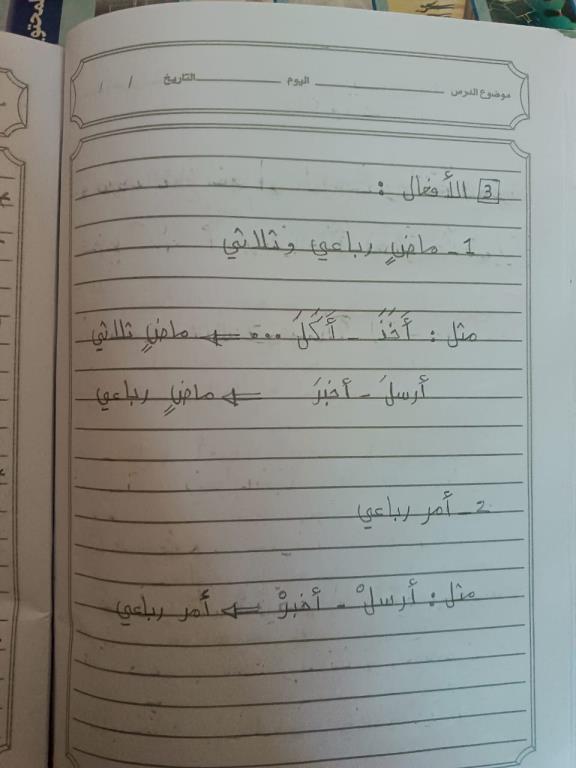 موضوع الدرس اليوم التاريخ / /
3 الأفعال :
1 - ماضٍ رباعي وثلاثي
مثل : أَخَذَ - أَكَلَ ... ⇐ ماضٍ ثلاثي
أرسلَ - أخبرَ ⇐ ماضٍ رباعي
2 - أمر رباعي
مثل : أرسلْ - أخبرْ ⇐ أمر رباعي